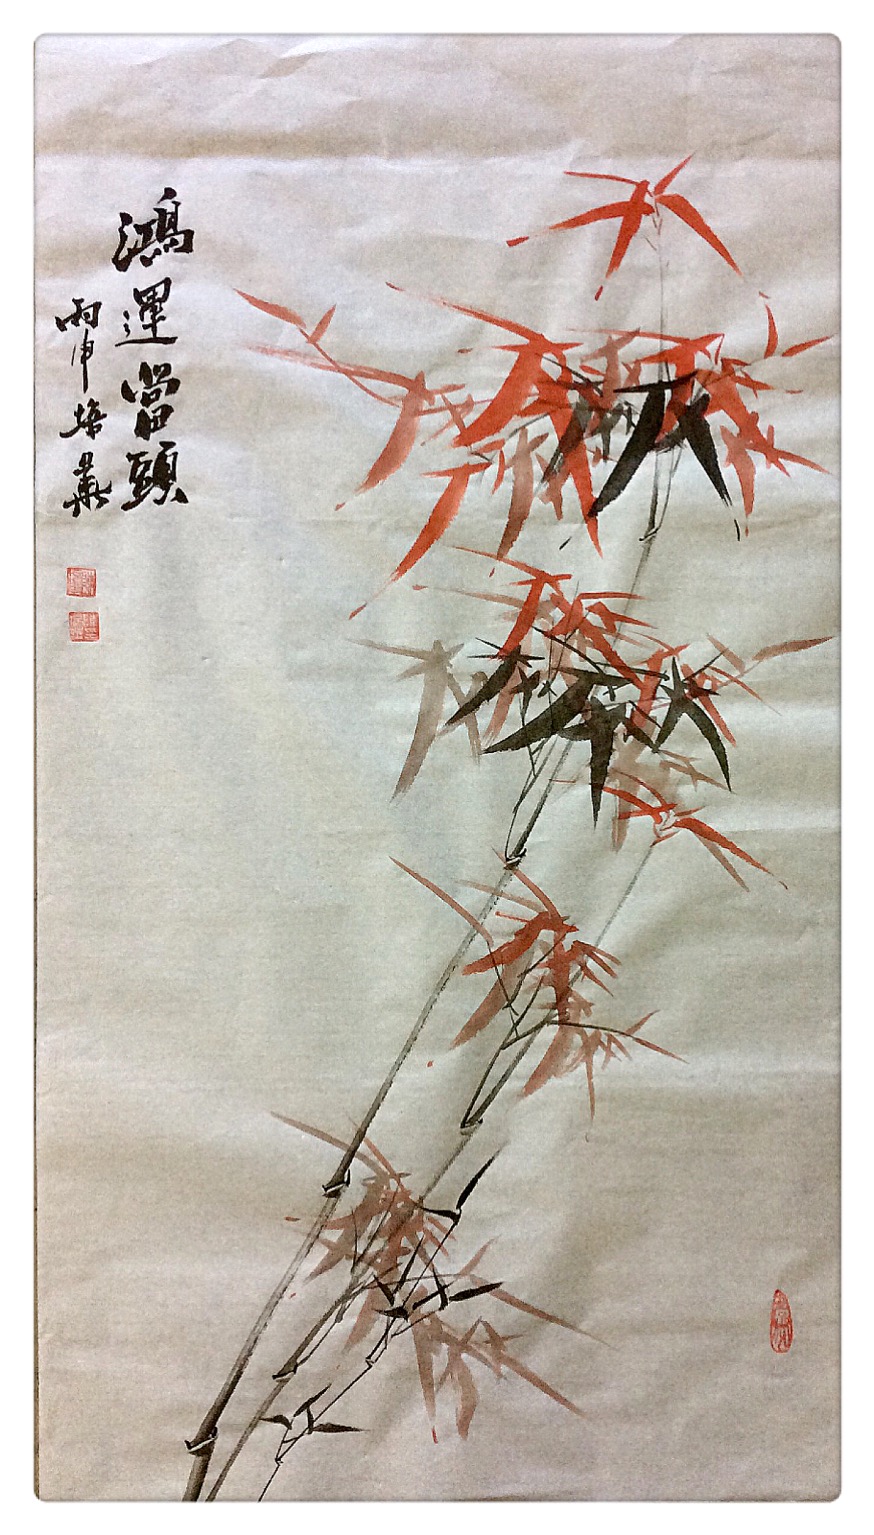 鴻運當頭
丙申培